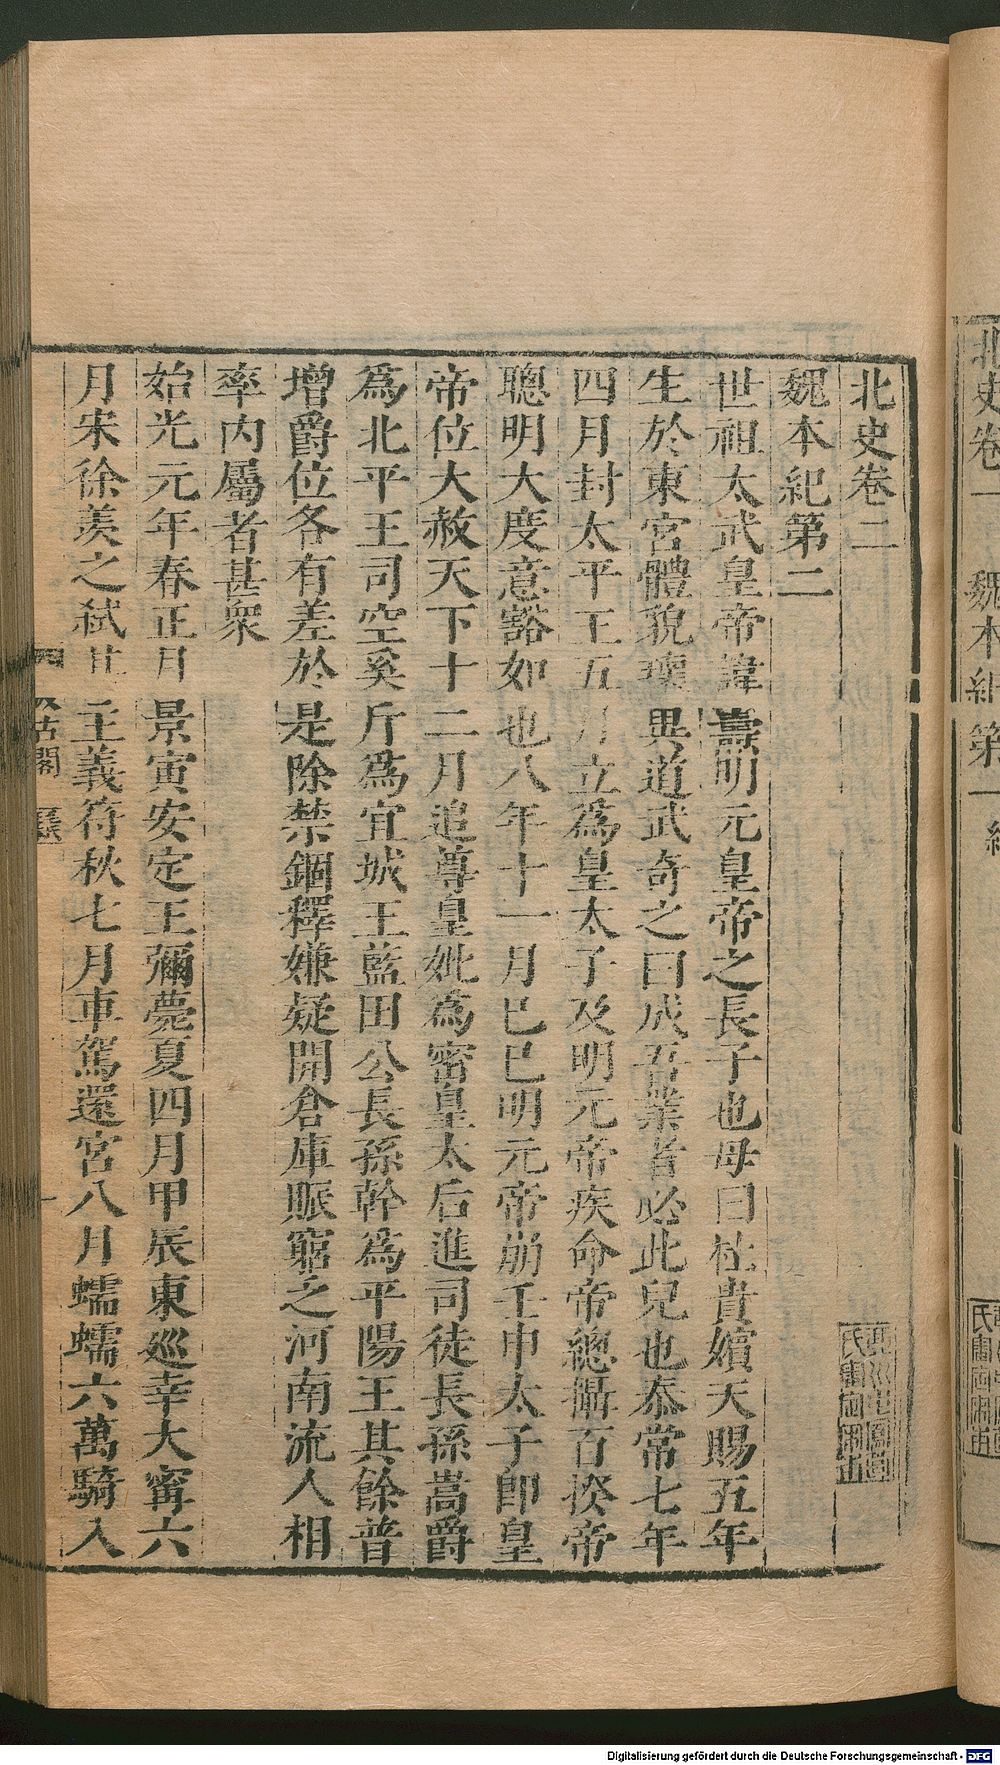 北史卷二
魏本紀第二
世祖太武皇帝諱燾明元皇帝之長子也母曰杜貴嬪天賜五年
生於東宮體貌瓌異道武奇之曰成吾業者必此兒也泰常七年
四月封太平王五月立為皇太子及明元帝疾命帝總攝百揆帝
聰明大度意豁如也八年十一月己巳明元帝崩壬申太子卽皇
帝位大赦天下十二月追尊皇妣為密皇太后進司徒長孫嵩爵
爲北平王司空奚斤爲宜城王藍田公長孫幹爲平陽王其餘普
增爵位各有差於是除禁錮釋嫌疑開倉庫賑窮乏河南流人相
率內屬者甚衆
始光元年春正月景寅安定王彌薨夏四月甲辰東巡幸大甯六
月宋徐羨之弑其主義符秋七月車駕還宮八月蠕蠕六萬騎入
北史卷一
魏本紀第一
Digitalisierung gefördert durch die Deutsche Forschungsgemeinschaft - DFG